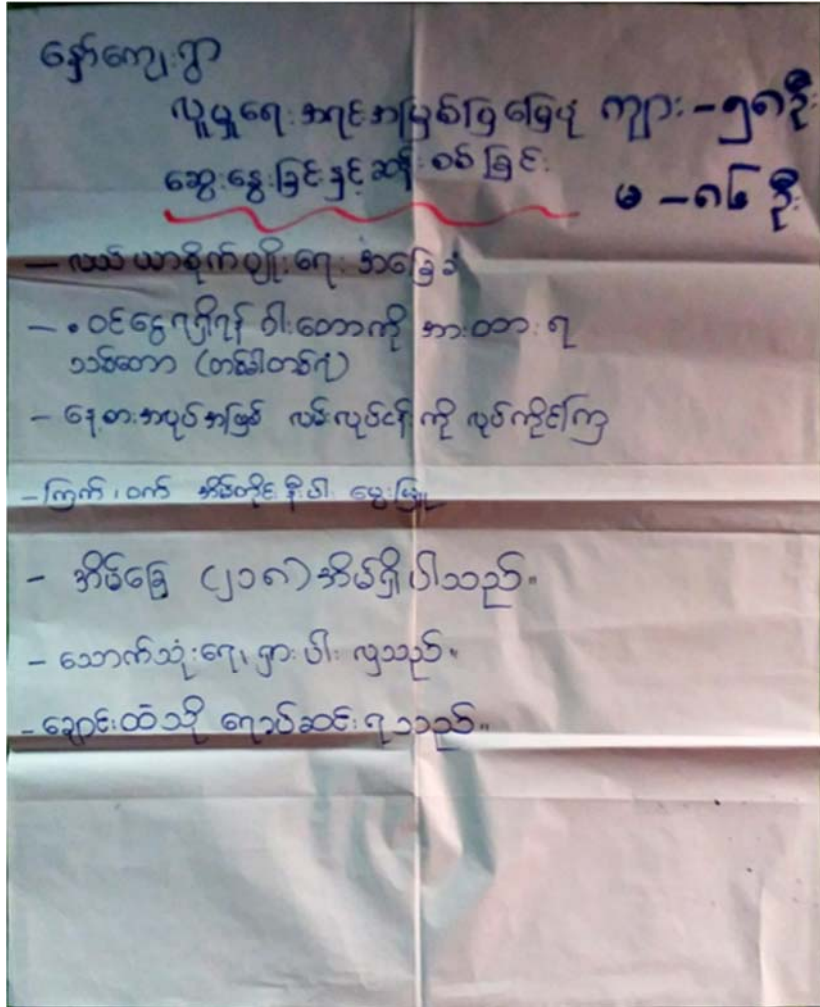 နှော်ကျေးရွာ
လူမှုရေးအရင်းအမြစ်ပြမြေပုံ ကျား - ၅၈ဦး
ဆွေးနွေးခြင်းနှင့်ဆန်းစစ်ခြင်း မ - ၈၆ ဦး
- လယ်ယာစိုက်ပျိုးရေး အခြေခံ
- ဝင်ငွေရရှိရန် ဝါးတောကို အားထားရ
သစ်တော (တစ်ခါတစ်ရံ)
- နေ့စားအလုပ်အဖြစ် လမ်းလုပ်ငန်းကို လုပ်ကိုင်ကြ
- ကြက်၊ ဝက် အိမ်တိုင်းနီးပါး မွေးမြူ
- အိမ်ခြေ (၂၁၈) အိမ်ရှိပါသည်။
- သောက်သုံးရေ ရှားပါးလှသည်။
- ချောင်းထဲသို့ ရေခပ်ဆင်းရသည်။